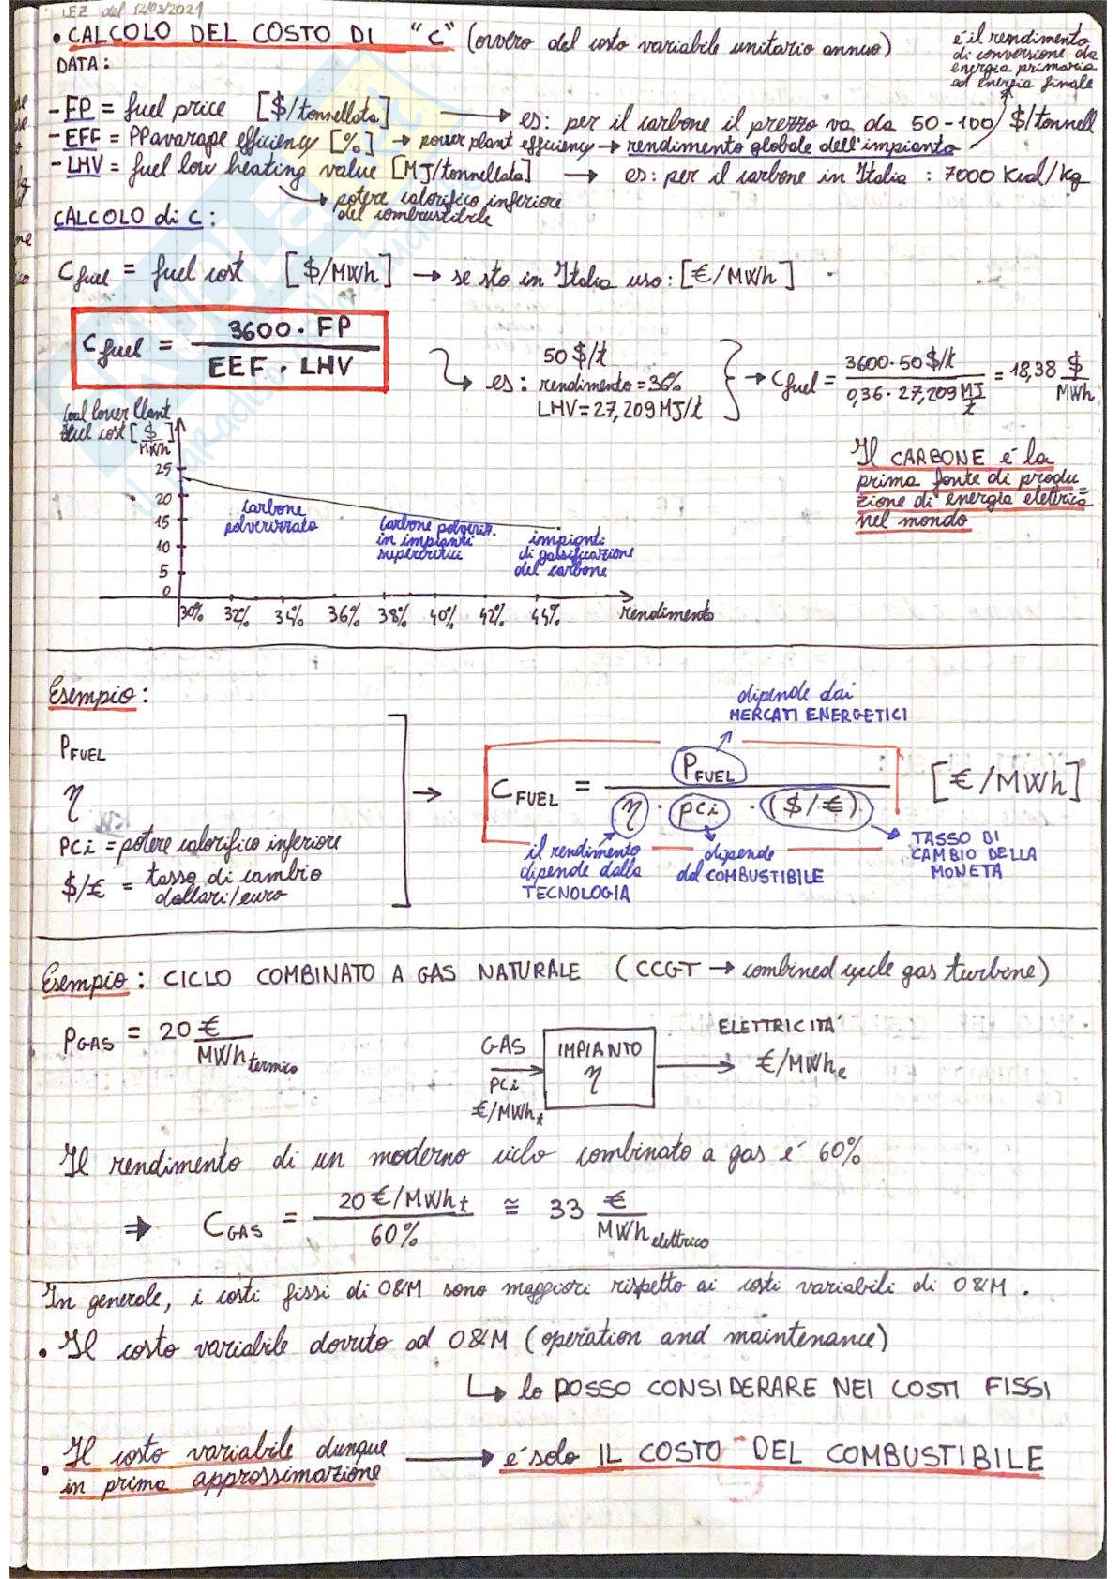 LEZ del 12/03/2021
• CALCOLO DEL COSTO DI "C" (ovvero del costo variabile unitario annuo)
DATA:
é il rendimento
di conversione da
energia primaria
ad energia finale
- FP = fuel price [$/tonnellata] → es: per il carbone il prezzo va da 50-100 $/tonnell
- EFF = PPavarage efficiency [%] → power plant efficiency → rendimento globale dell'impianto
- LHV = fuel low heating value [MJ/tonnellata] → es: per il carbone in Italia : 7000 Kcal/kg
potere calorifico inferiore
del combustibile
CALCOLO di C:
C fuel = fuel cost [$/MWh] → se sto in Italia uso: [€/MWh]
C fuel = 3600 · FP / EEF · LHV
50 $/t
es: rendimento = 36%
LHV = 27,209 MJ/t
→ C fuel = 3600·50 $/t / 0,36 · 27,209 MJ/t = 18,38 $/MWh
Coal lower Llant
fuel cost [$/MWh]
25
20
15
10
5
0
carbone
polverizzato
carbone polveriz.
in impianti
supercritici
impianti
di gassificazione
del carbone
30% 32% 34% 36% 38% 40% 42% 44% rendimento
Il CARBONE é la
prima fonte di produ=
zione di energia elettrica
nel mondo
Esempio:
P FUEL
η
PCi = potere calorifico inferiore
$/€ = tasso di cambio
dollari/euro
dipende dai
MERCATI ENERGETICI
C FUEL = P FUEL / η · PCi · ($/€) [€/MWh]
il rendimento
dipende dalla
TECNOLOGIA
dipende
dal COMBUSTIBILE
TASSO DI
CAMBIO DELLA
MONETA
Esempio: CICLO COMBINATO A GAS NATURALE (CCGT → combined cycle gas turbine)
P GAS = 20 €/MWh termico
GAS
PCi
€/MWh t
IMPIANTO
η
ELETTRICITA'
€/MWh e
Il rendimento di un moderno ciclo combinato a gas é 60%
⇒ C GAS = 20 €/MWh t / 60% ≅ 33 €/MWh elettrico
In generale, i costi fissi di O&M sono maggiori rispetto ai costi variabili di O&M.
• Il costo variabile dovuto ad O&M (operation and maintenance)
↳ lo POSSO CONSIDERARE NEI COSTI FISSI
• Il costo variabile dunque
in prima approssimazione → é solo IL COSTO DEL COMBUSTIBILE